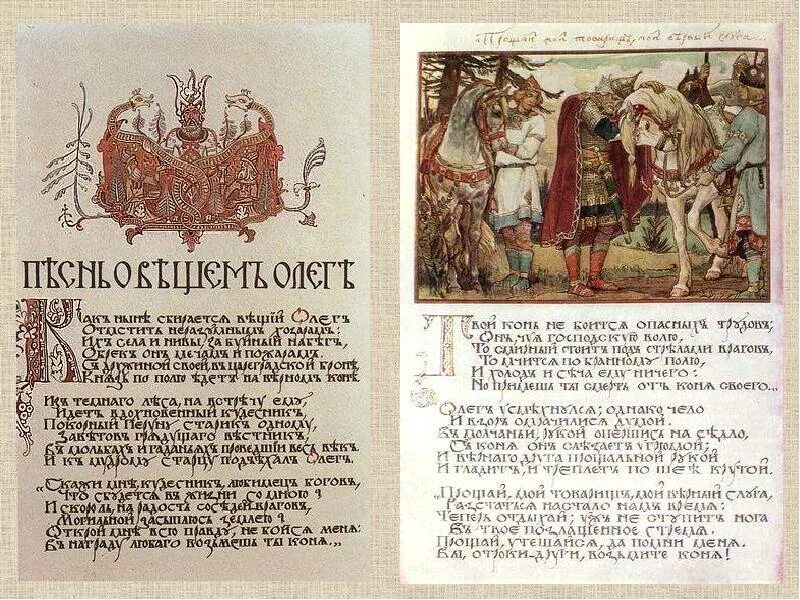 ПѢСНЬ О ВѢЩЕМЪ ОЛЕГѢ
Какъ нынѣ сбирается вѣщій Олегъ
Отмстить неразумнымъ хозарамъ:
Ихъ села и нивы за буйный набѣгъ,
Обрекъ онъ мечамъ и пожарамъ.
Съ дружиной своей, въ цареградской бронѣ,
Князь по полю ѣдетъ на вѣрномъ конѣ.
Изъ темнаго лѣса, на встрѣчу ему,
Идетъ вдохновенный кудесникъ,
Покорный Перуну старикъ одному,
Завѣтовъ грядущаго вѣстникъ,
Въ мольбахъ и гаданьяхъ проведшій весь вѣкъ.
И къ мудрому старцу подъѣхалъ Олегъ.
„Скажи мнѣ, кудесникъ, любимецъ боговъ,
Что сбудется въ жизни со мною?
И скоро ль, на радость сосѣдей враговъ,
Могильной засыплюсь землею?
Открой мнѣ всю правду, не бойся меня:
Въ награду любаго возьмешь ты коня.„
„Прощай мой товарищъ, мой вѣрный слуга...
Твой конь не боится опасныхъ трудовъ;
Онъ, чуя господскую волю,
То смирный стоитъ подъ стрѣлами враговъ,
То мчится по бранному полю,
И холодъ и сѣча ему ничего:
Но примешь ты смерть отъ коня своего...
Олегъ усмѣхнулся; однако чело
И взоръ омрачилися думой.
Въ молчаньи, рукой опершись на сѣдло,
Съ коня онъ слѣзаетъ угрюмой;
И вѣрнаго друга прощальной рукой
И гладитъ, и треплетъ по шеѣ крутой.
„Прощай, мой товарищъ, мой вѣрный слуга,
Разстаться настало намъ время:
Теперь отдыхай; ужъ не ступитъ нога
Въ твое позлащенное стремя.
Прощай, утѣшайся, да помни меня.
Вы, отроки-други, возьмите коня!